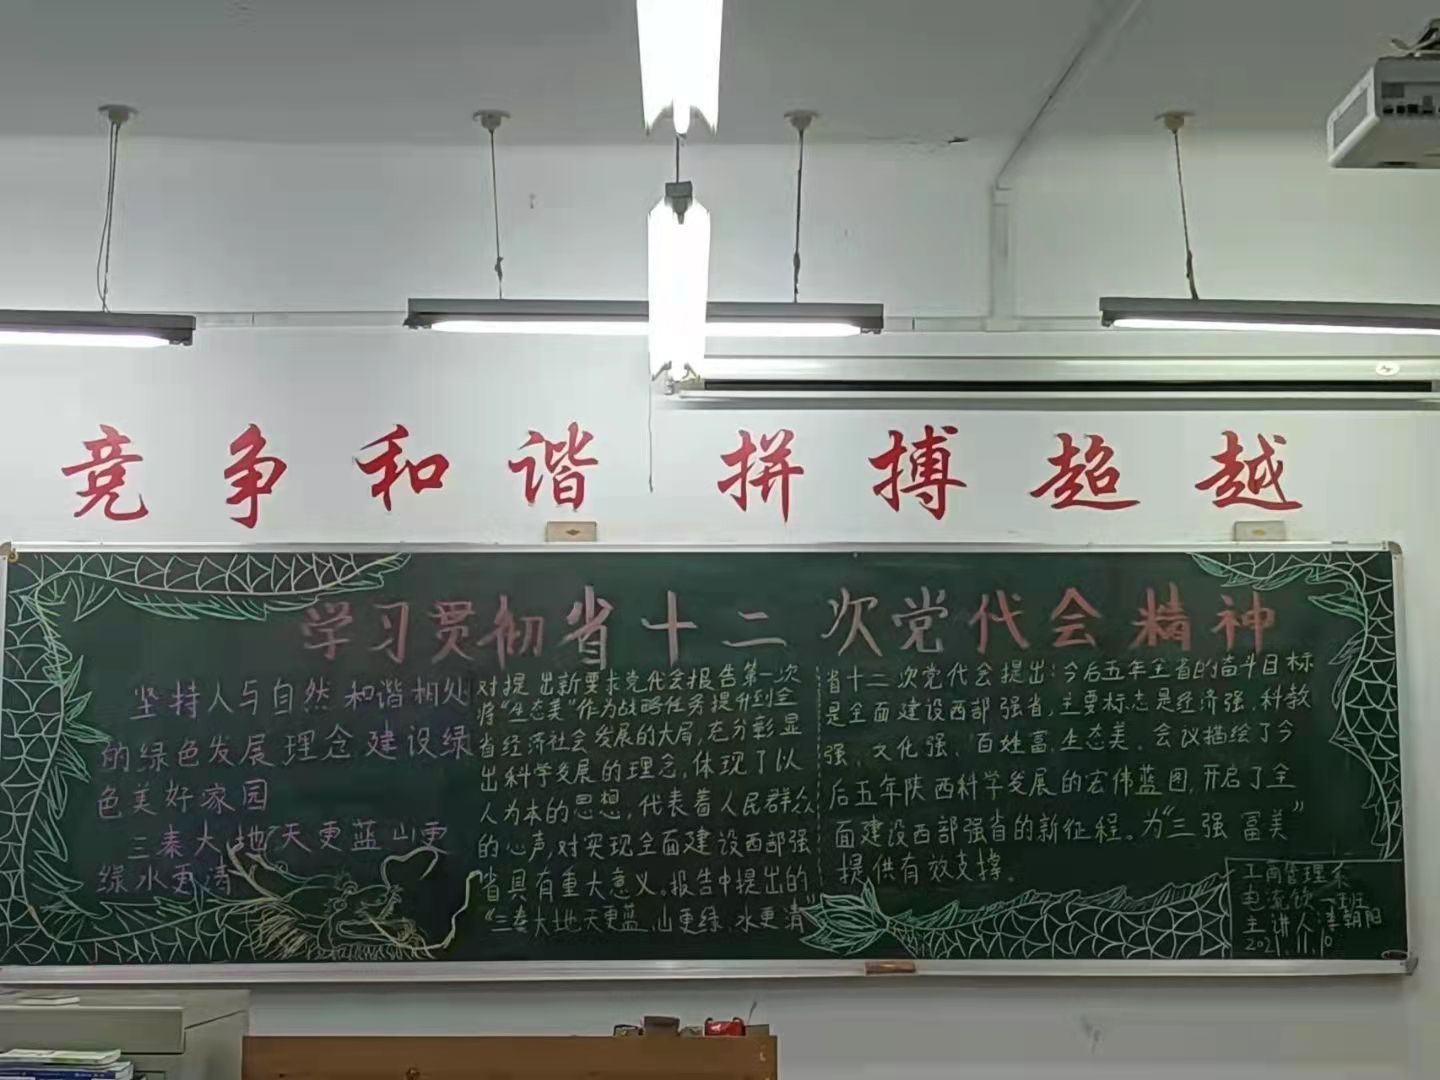 竞争和谐 拼搏超越
学习贯彻省十二次党代会精神
坚持人与自然和谐相处
的绿色发展理念建设绿
色美好家园
三秦大地天更蓝山更
绿水更清
对提出新要求党代会报告第一次
将“生态美”作为战略任务提升到全
省经济社会发展的大局，充分彰显
出科学发展的理念，体现了以
人为本的思想，代表着人民群众
的心声，对实现全面建设西部强
省具有重大意义。报告中提出的
“三秦大地天更蓝、山更绿、水更清”
省十二次党代会提出：今后五年全省的奋斗目标
是全面建设西部强省，主要标志是经济强、科教
强、文化强、百姓富、生态美。会议描绘了今
后五年陕西科学发展的宏伟蓝图，开启了全
面建设西部强省的新征程。为“三强 富美”
提供有效支撑。
工商管理系
电流饮一班
主讲人：李朝阳
2021.11.10